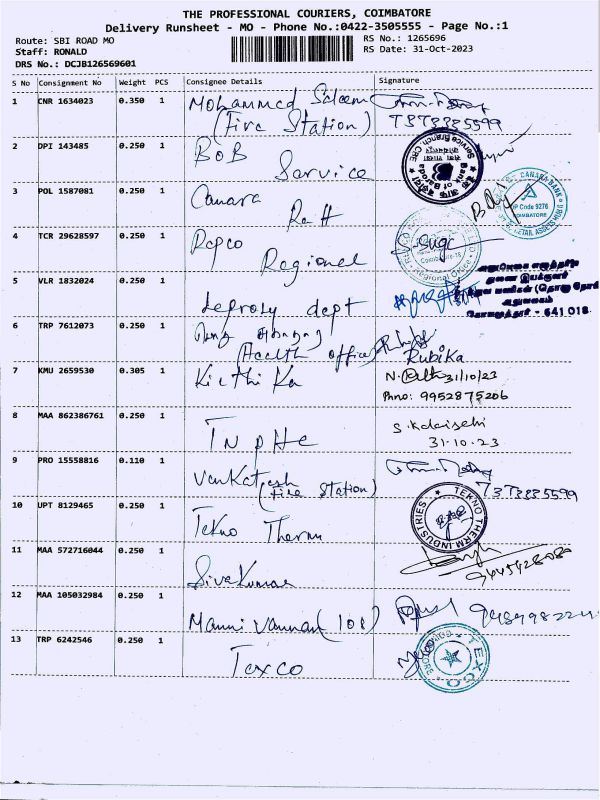 THE PROFESSIONAL COURIERS, COIMBATORE
Delivery Runsheet - MO - Phone No.:0422-3505555 - Page No.:1
Route: SBI ROAD MO
RS No.: 1265696
Staff: RONALD
RS Date: 31-Oct-2023
DRS No.: DCJB126569601
S No Consignment No Weight PCS Consignee Details Signature
1 CNR 1634023 0.350 1 Mohammed Saleem
(Fire Station) 7373335599
2 DPI 143485 0.250 1 BOB
Service
Service Branch, CBE
Bank of Baroda
3 POL 1587081 0.250 1 Canara
CANARA BANK
DP Code 9276
COIMBATORE
4 TCR 29628597 0.250 1 Repco
Regional
Regional Office
5 VLR 1832024 0.250 1 Leprosy dept
துணை இயக்குனர்
அலுவலகம்
- 641 018
6 TRP 7612073 0.250 1
(Health office) Rubika
7 KMU 2659530 0.305 1 Kirthi Ka 31/10/23
Phno: 9952875206
8 MAA 862386761 0.250 1 TNPHC
S. Kalaiselvi
31.10.23
9 PRO 15558816 0.110 1 Venkatesh
(Fire Station) 7373335599
10 UPT 8129465 0.250 1 Tekno Therm
TEKNO THERM INDUSTRIES
11 MAA 572716044 0.250 1 Sivakumar
12 MAA 105032984 0.250 1 Manni Vannan (108)
13 TRP 6242546 0.250 1 Texco
TEXCO